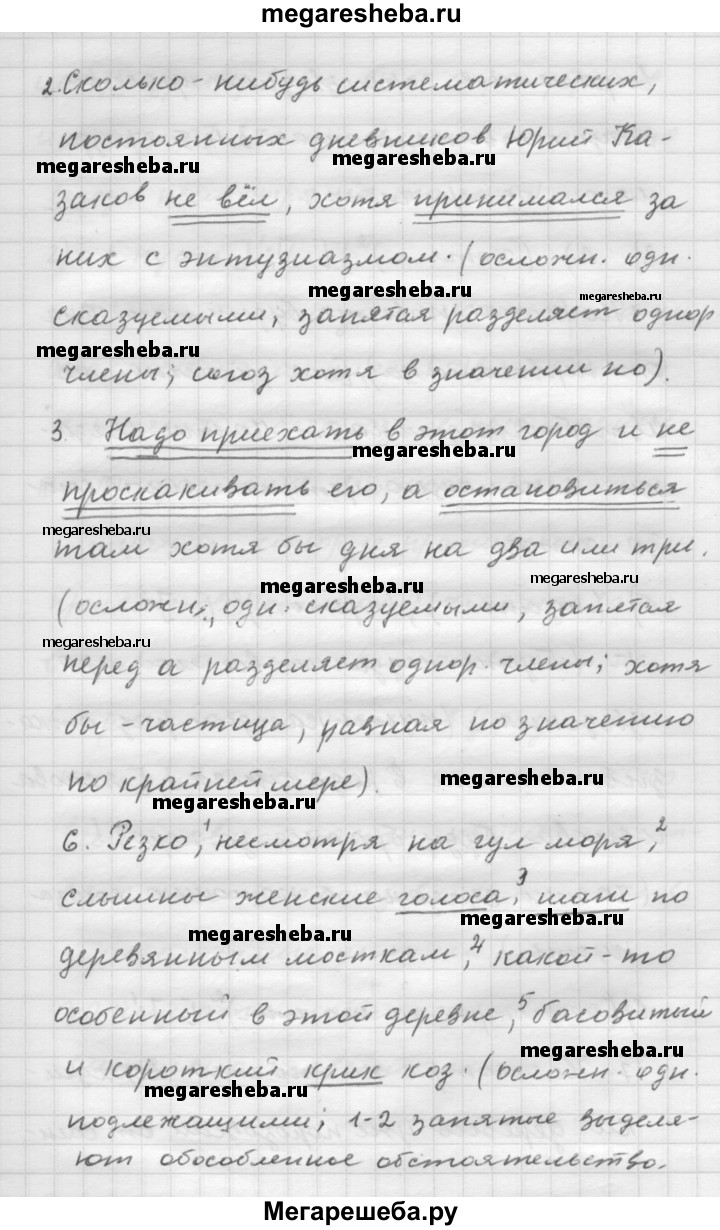 megaresheba.ru
2. Сколько-нибудь систематических,
постоянных дневников Юрий Ка-
megaresheba.ru megaresheba.ru
заков не вёл, хотя принимался за
них с энтузиазмом. (осложн. одн.
megaresheba.ru megaresheba.ru
сказуемыми, запятая разделяет однор
megaresheba.ru
члены; союз хотя в значении но).
3. Надо приехать в этот город и не
megaresheba.ru
проскакивать его, а остановиться
megaresheba.ru
там хотя бы дня на два или три.
megaresheba.ru megaresheba.ru
(осложн., одн. сказуемыми, запятая
megaresheba.ru
перед а разделяет однор. члены; хотя
бы - частица, равная по значению
по крайней мере).
megaresheba.ru
megaresheba.ru
6. Резко,¹ несмотря на гул моря,²
слышны женские голоса,³ шаги по
megaresheba.ru
megaresheba.ru
деревянным мосткам,⁴ какой-то
особенный в этой деревне,⁵ басовитый
megaresheba.ru
и короткий крик коз. (осложн. одн.
megaresheba.ru
подлежащими; 1-2 запятые выделя-
ют обособленное обстоятельство.
Мегарешеба.ру